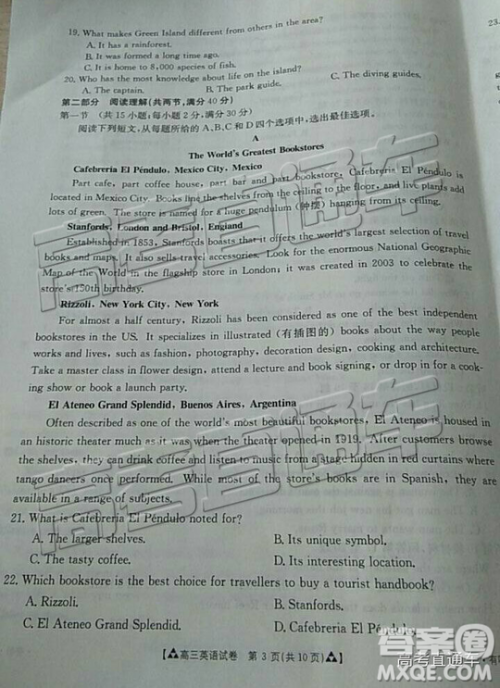 19. What makes Green Island different from others in the area?
A. It has a rainforest.
B. It was formed a long time ago.
C. It is home to 8,000 species of fish.
20. Who has the most knowledge about life on the island?
A. The captain. B. The park guide. C. The diving guides.
第二部分 阅读理解(共两节,满分40分)
第一节 (共15小题;每小题2分,满分30分)
阅读下列短文,从每题所给的A、B、C和D四个选项中,选出最佳选项。
A
The World's Greatest Bookstores
Cafebreria El Péndulo, Mexico City, Mexico
Part cafe, part coffee house, part bar and part bookstore, Cafebreria El Péndulo is
located in Mexico City. Books line the shelves from the ceiling to the floor, and live plants add
lots of green. The store is named for a huge pendulum (钟摆) hanging from its ceiling.
Stanfords, London and Bristol, England
Established in 1853, Stanfords boasts that it offers the world's largest selection of travel
books and maps. It also sells travel accessories. Look for the enormous National Geographic
Map of the World in the flagship store in London; it was created in 2003 to celebrate the
store's 150th birthday.
Rizzoli, New York City, New York
For almost a half century, Rizzoli has been considered as one of the best independent
bookstores in the US. It specializes in illustrated (有插图的) books about the way people
works and lives, such as fashion, photography, decoration design, cooking and architecture.
Take a master class in flower design, attend a lecture and book signing, or drop in for a cook-
ing show or book a launch party.
El Ateneo Grand Splendid, Buenos Aires, Argentina
Often described as one of the world's most beautiful bookstores, El Ateneo is housed in
an historic theater much as it was when the theater opened in 1919. After customers browse
the shelves, they can drink coffee and listen to music from a stage hidden in red curtains where
tango dancers once performed. While most of the store's books are in Spanish, they are
available in a range of subjects.
21. What is Cafebreria El Péndulo noted for?
A. The larger shelves. B. Its unique symbol.
C. The tasty coffee. D. Its interesting location.
22. Which bookstore is the best choice for travellers to buy a tourist handbook?
A. Rizzoli. B. Stanfords.
C. El Ateneo Grand Splendid. D. Cafebreria El Péndulo.
高三英语试卷 第3页(共10页)
23.
高考直通车
高考直通车
答案圈
高考直通车